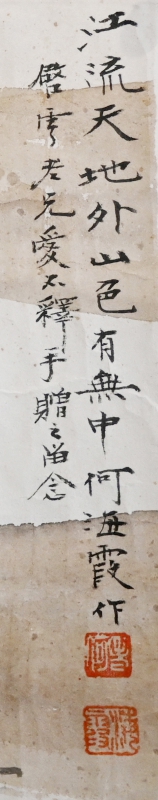 江流天地外山色有無中何海霞作
啓雲老兄愛不釋手贈之留念